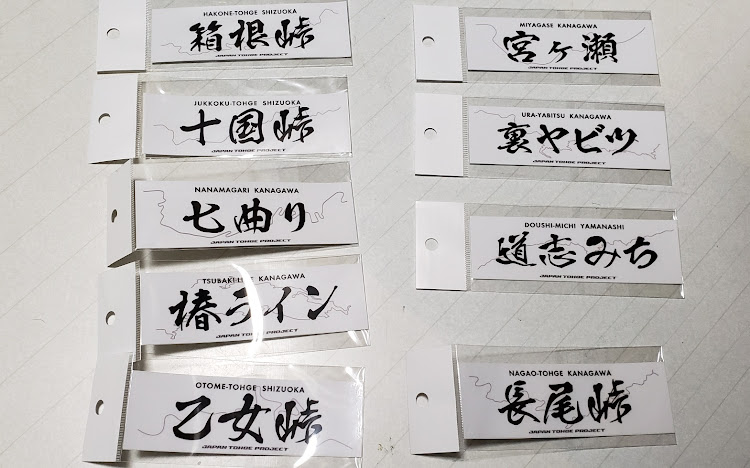 HAKONE-TOHGE SHIZUOKA
箱根峠
JAPAN TOHGE PROJECT
JUKKOKU-TOHGE SHIZUOKA
十国峠
JAPAN TOHGE PROJECT
NANAMAGARI KANAGAWA
七曲り
JAPAN TOHGE PROJECT
TSUBAKI-LINE KANAGAWA
椿ライン
JAPAN TOHGE PROJECT
OTOME-TOHGE SHIZUOKA
乙女峠
JAPAN TOHGE PROJECT
MIYAGASE KANAGAWA
宮ヶ瀬
JAPAN TOHGE PROJECT
URA-YABITSU KANAGAWA
裏ヤビツ
JAPAN TOHGE PROJECT
DOUSHI-MICHI YAMANASHI
道志みち
JAPAN TOHGE PROJECT
NAGAO-TOHGE KANAGAWA
長尾峠
JAPAN TOHGE PROJECT